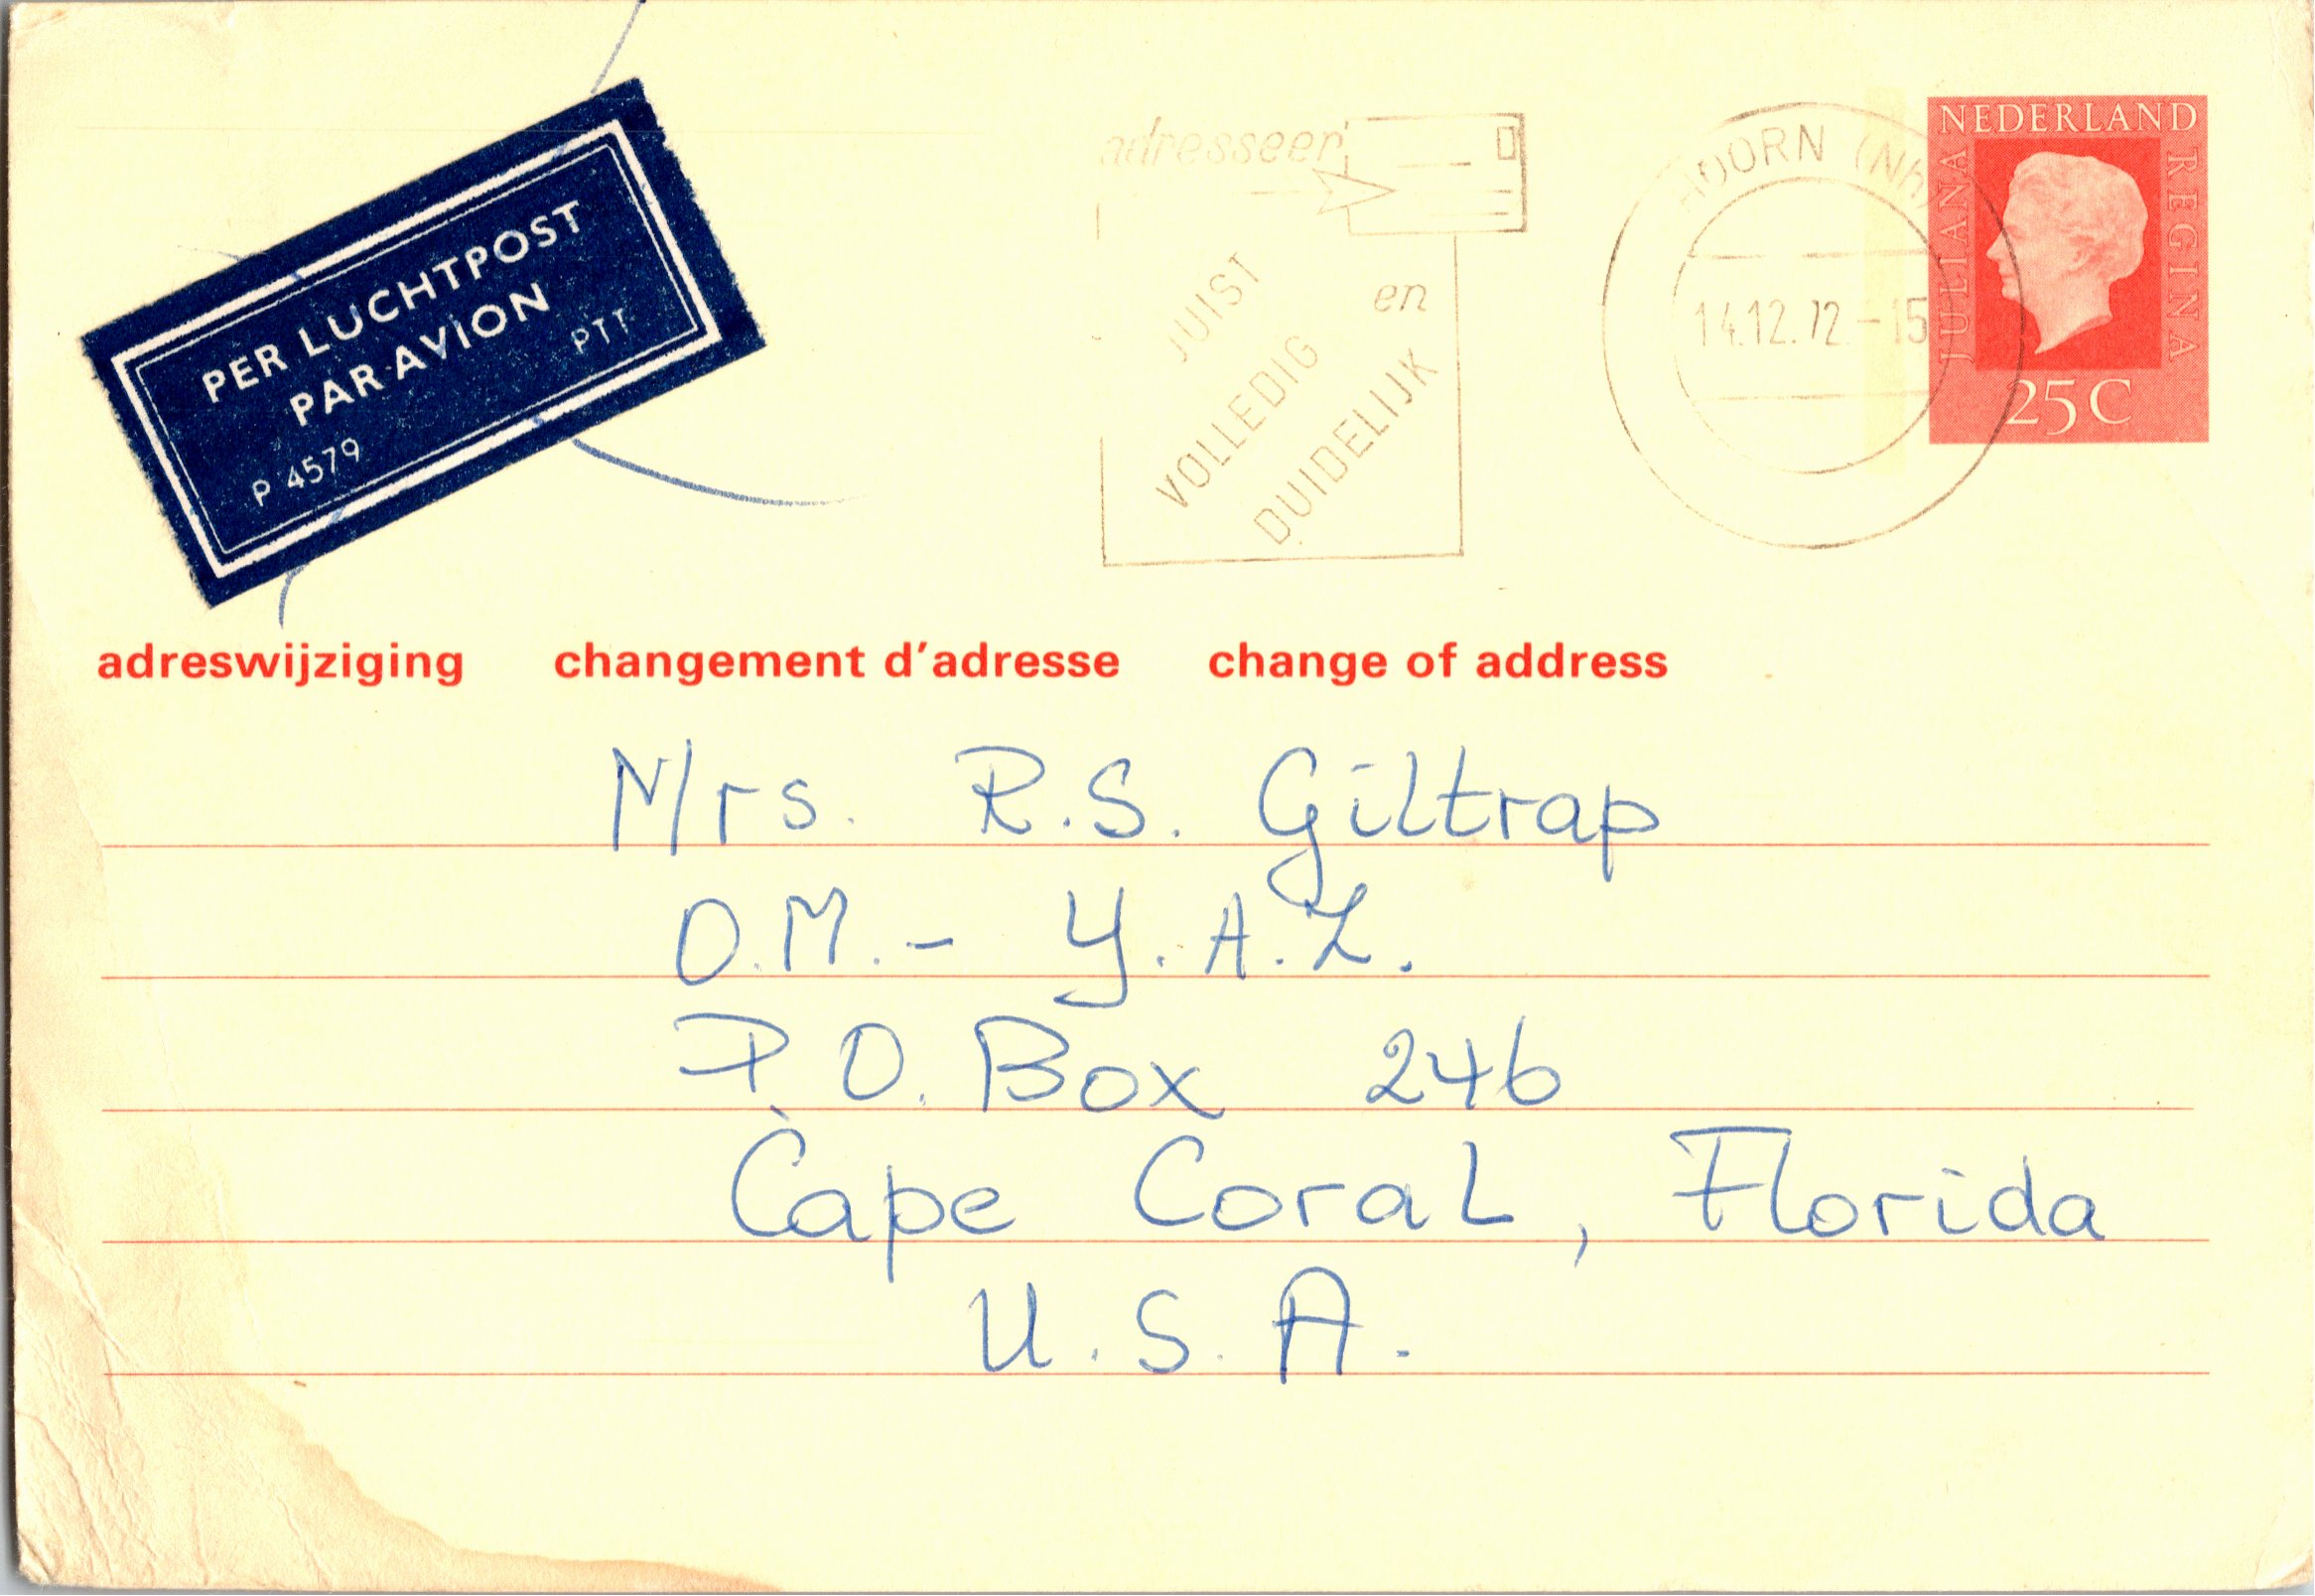 PER LUCHTPOST
PAR AVION
PTT
P 4579
adresseer
JUIST
VOLLEDIG
en
DUIDELIJK
HOORN (Nh)
14.12.72.-15
NEDERLAND
JULIANA
REGINA
25C
adreswijziging changement d'adresse change of address
Mrs. R.S. Giltrap
O.M. - Y.A.Z.
P.O. Box 246
Cape Coral, Florida
U.S.A.